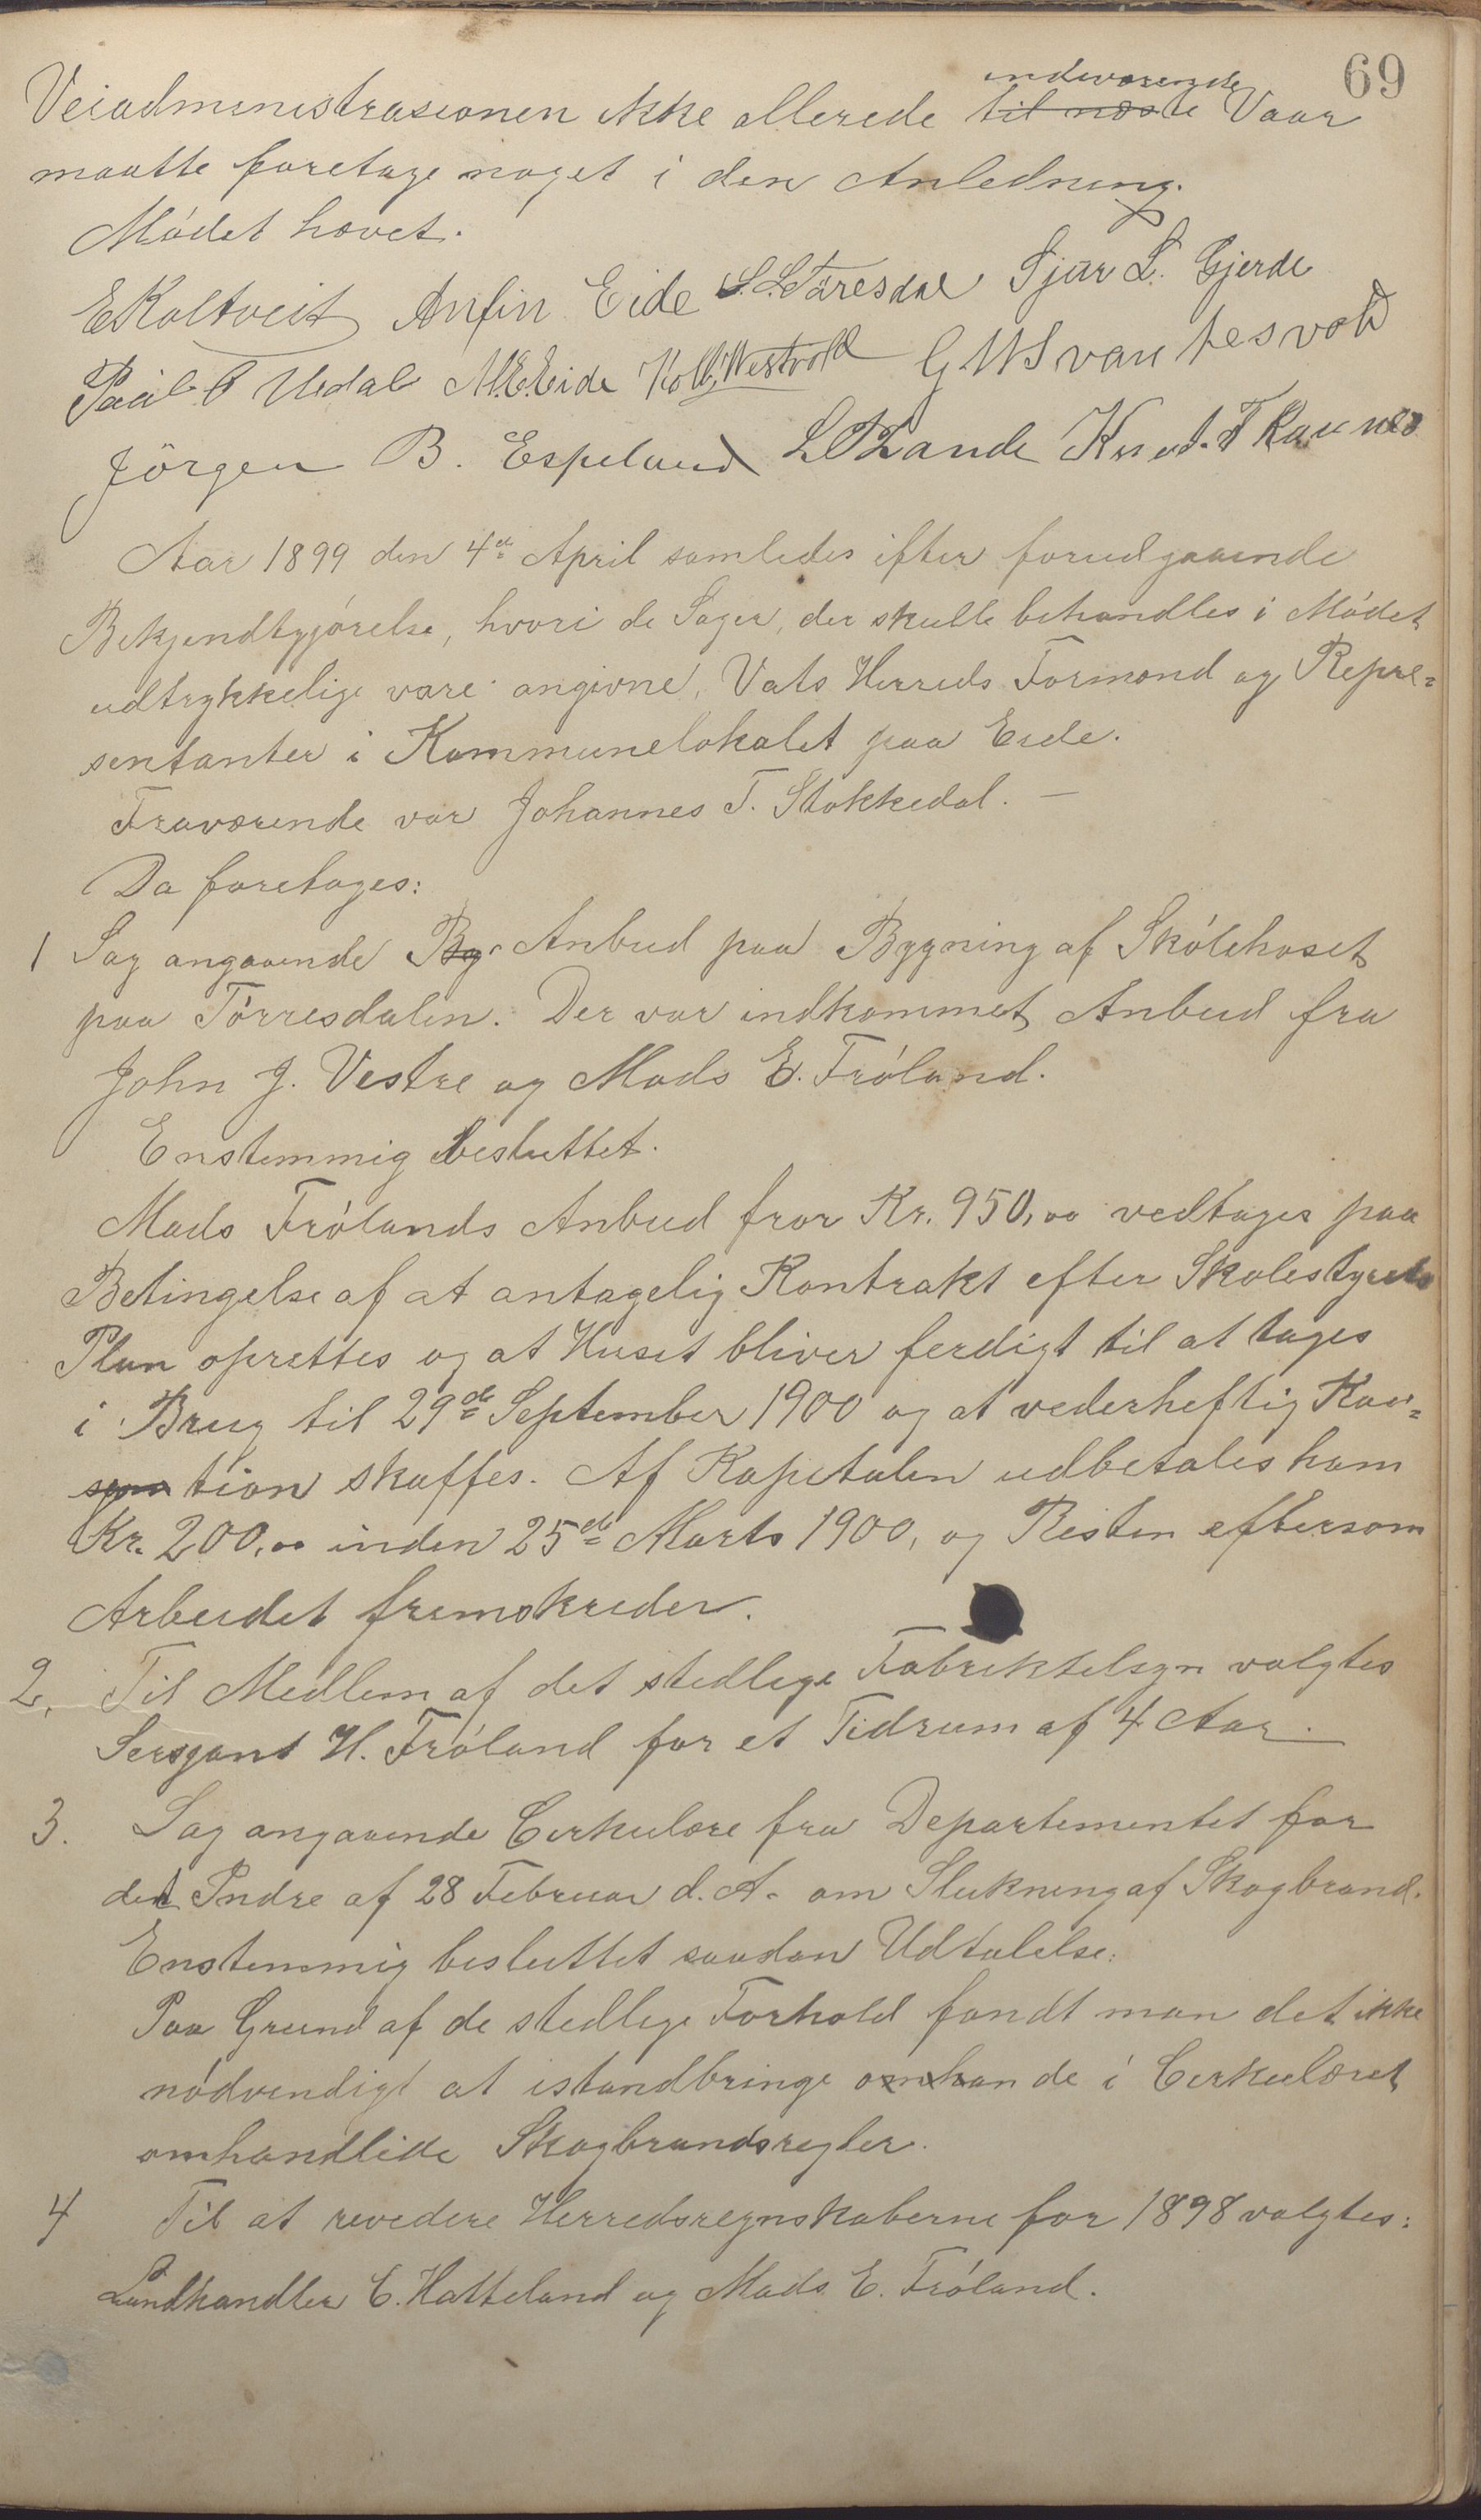 69
indeværende
Veiadministrasionen ikke allerede til næste Vaar
maatte foretage noget i den Anledning.
Mødet hævet.
E Koltveit Anfin Eide S. L. Taresdal Sjur L. Gjerde
Paal O Uedal M.E.Eide Kolb. Westvold G M Svantesvold
Jörgen B. Espeland L O Lande Knut. T Raunes
Aar 1899 den 4de April samledes efter forudgaaende
Bekjendtgjørelse, hvori de Sager, der skulle behandles i Mødet
udtrykkelige vare angivne, Vats Herreds Formænd og Repræ-
sentanter i Kommunelokalet paa Eide.
Fraværende var Johannes T. Stokkedal. —
Da foretages:
1 Sag angaaende Byg Anbud paa Bygning af Skólehuset
paa Tørresdalen. Der var indkommet Anbud fra
John J. Vestre og Mads E. Frøland.
Enstemmig besluttet.
Mads Frølands Anbud fror Kr. 950,00 vedtages paa
Betingelse af at antagelig Kontrakt efter Skolestyrets
Plan oprettes og at Huset bliver ferdigt til at tages
i Brug til 29de September 1900 og at vederheftig Kau-
tion skaffes. Af Kapitalen udbetales ham
Kr. 200,00 inden 25de Marts 1900, og Resten eftersom
Arbeidet fremskreder.
2, Til Medlem af det stedlige Fabriktilsyn valgtes
Sersjant H. Frøland for et Tidrum af 4 Aar.
3. Sag angaaende Cirkulære fra Departementet for
det Indre af 28 Februar d. A. om Slukning af Skogbrand.
Enstemmig besluttet saadan Udtalelse:
Paa Grund af de stedlige Forhold fandt man det ikke
nødvendigt at istandbringe omhan de i Cirkulæret
omhandlede Skogbrandsregler.
4 Til at revedere Herredsregnskaberne for 1898 valgtes:
Landhandler C. Hatteland og Mads E. Frøland.